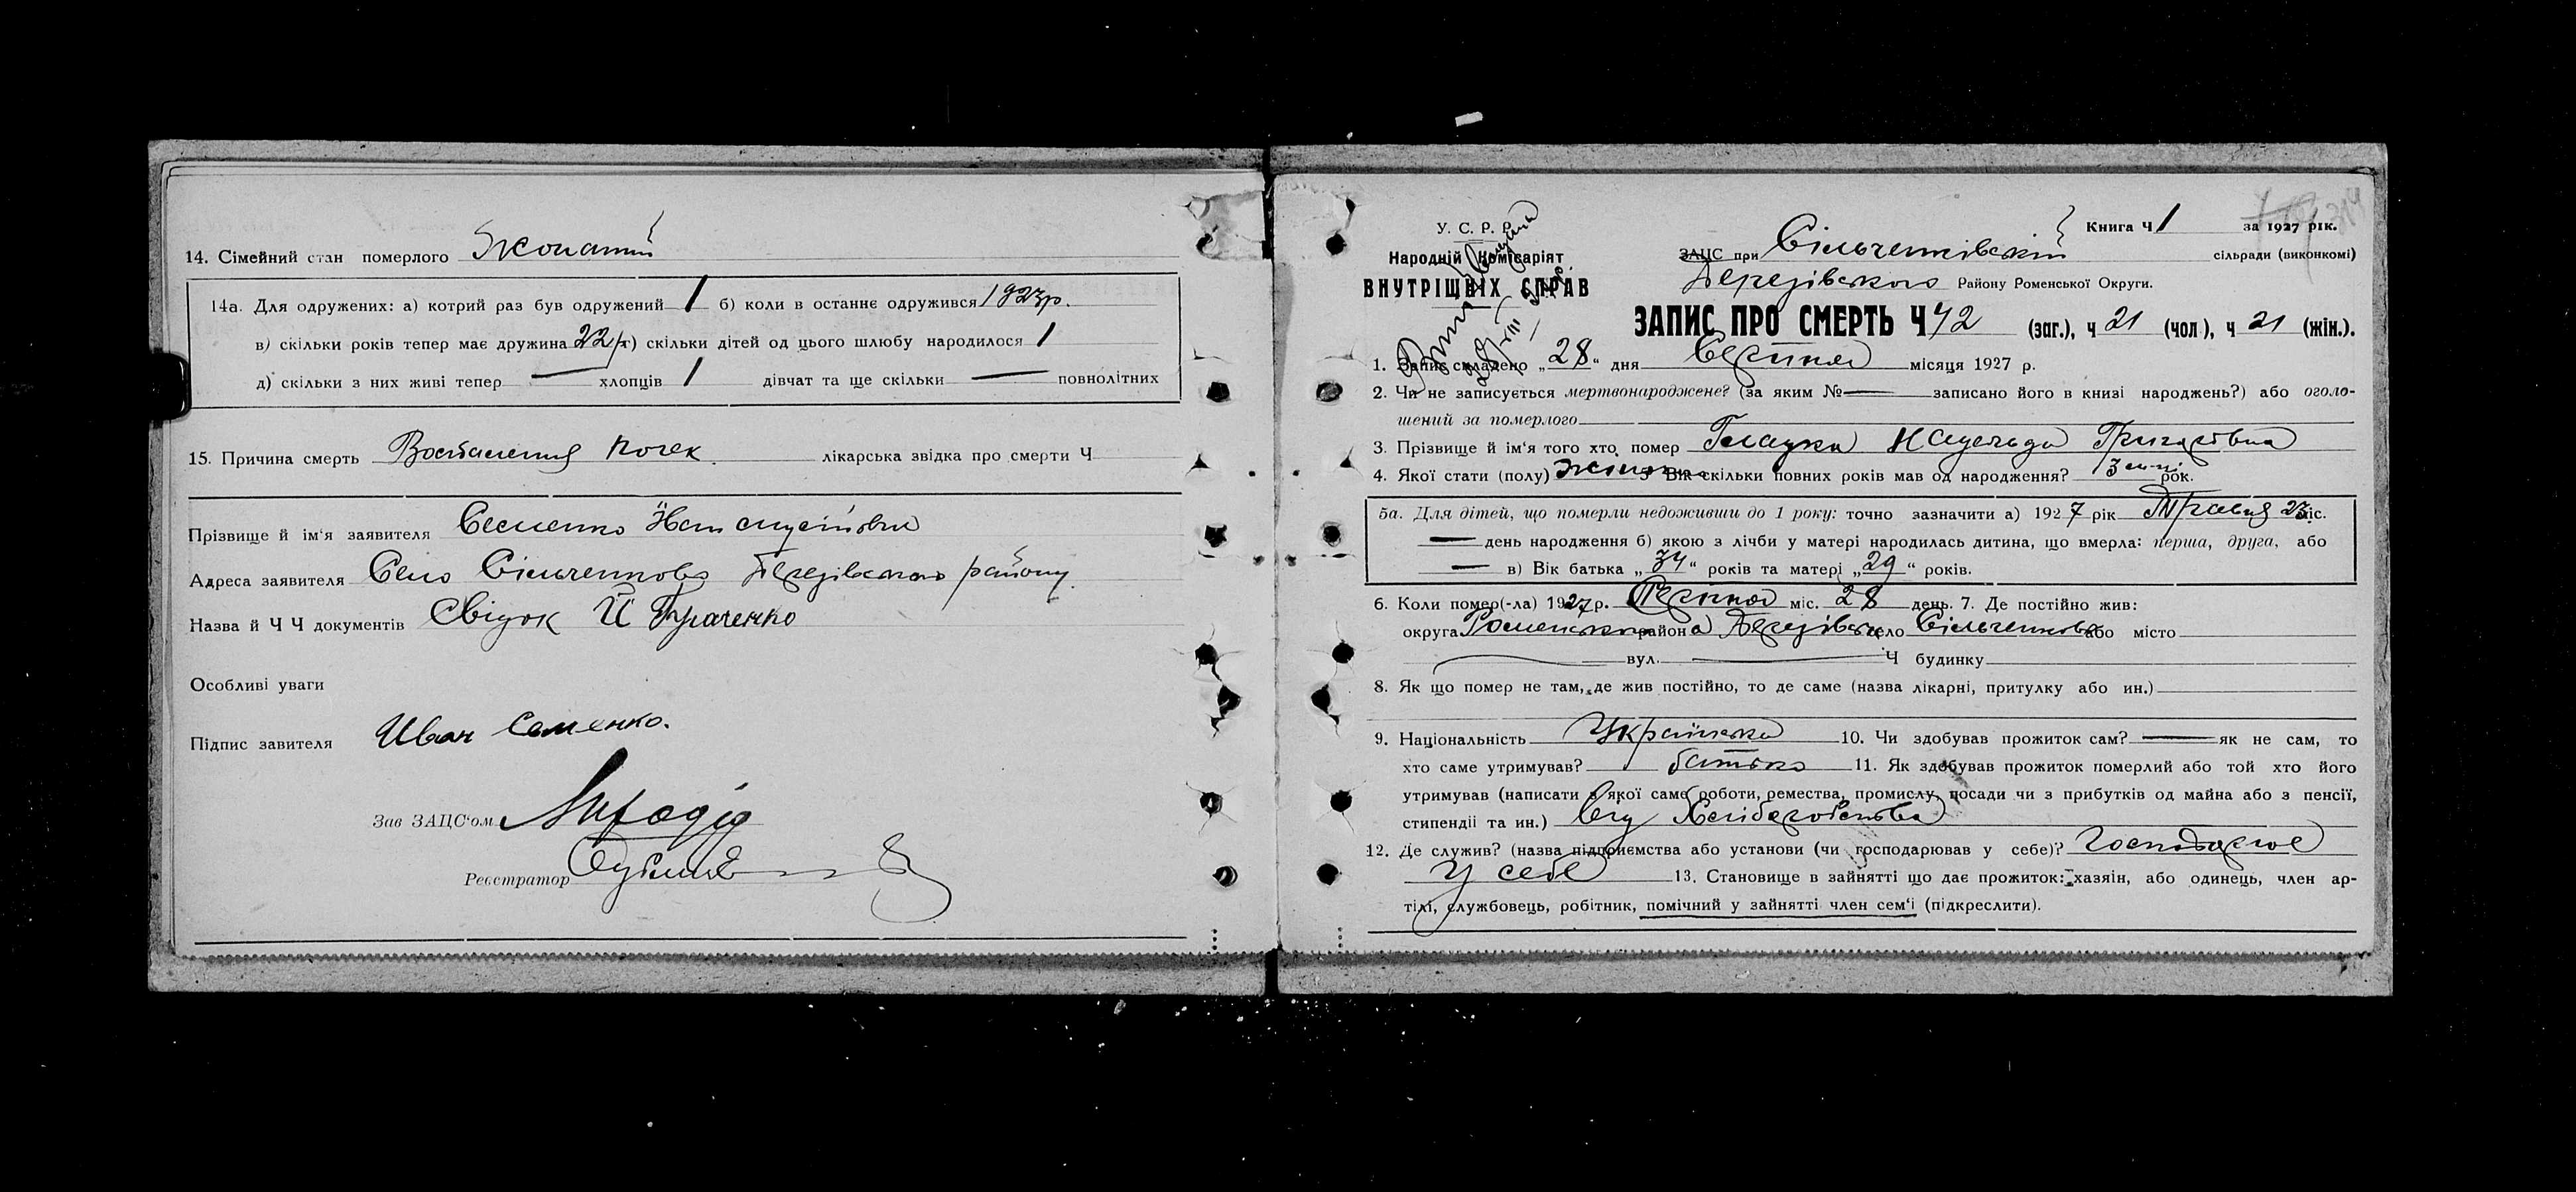 14. Сімейний стан померлого Жонатий
14а. Для одружених: а) котрий раз був одружений 1 б) коли в останнє одружився 1923р.
в) скільки років тепер має дружина 22 р. г) скільки дітей од цього шлюбу народилося 1
д) скільки з них живі тепер — хлопців 1 дівчат та ще скільки — повнолітних
15. Причина смерть Воспаления почек. лікарська звідка про смерти Ч
Прізвище й ім'я заявителя Семенко
Адреса заявителя Село Сільченково Березівського району.
Назва й Ч Ч документів Свідок Й Граченко
Особливі уваги
Підпис завителя Иван Семенко.
Зав ЗАЦС'ом
Реєстратор
У. С. Р. Р.
Народній Комісаріят
ВНУТРІШНІХ СПРАВ
Книга Ч 1 за 1927 рік.
ЗАЦС при Сільченківській сільради (виконкомі)
Березівського Району Роменської Округи.
ЗАПИС ПРО СМЕРТЬ Ч 42 (заг.), ч 21 (чол), ч 21 (жін.).
1. Запис складено „28“ дня Серпня місяця 1927 р.
2. Чи не записується мертвонароджене? (за яким № — записано його в книзі народжень?) або оголо-
шений за померлого
3. Прізвище й ім'я того хто помер Гладка Надежда Григорівна
4. Якої стати (полу) жіноча 5 Вік скільки повних років мав од народження? 3 м-ці рок.
5а. Для дітей, що померли недоживши до 1 року: точно зазначити а) 1927 рік Травня 23 міс.
— день народження б) якою з лічби у матері народилась дитина, що вмерла: перша, друга, або
— в) Вік батька „34“ років та матері „29“ років.
6. Коли помер(-ла) 1927 р. Серпня міс. 28 день. 7. Де постійно жив:
округа Роменська района Березівськ село Сільченково або місто
— вул. — Ч будинку
8. Як що помер не там, де жив постійно, то де саме (назва лікарні, притулку або ин.)
9. Національність Українка 10. Чи здобував прожиток сам? — як не сам, то
хто саме утримував? батько 11. Як здобував прожиток померлий або той хто його
утримував (написати з якої саме роботи, ремества, промислу, посади чи з прибутків од майна або з пенсії,
стипендії та ин.) від Хліборобства
12. Де служив? (назва підприємства або установи (чи господарював у себе)? Господарює
у себе 13. Становище в зайнятті що дає прожиток: хазяін, або одинець, член ар-
тілі, службовець, робітник, помічний у зайнятті член сем'і (підкреслити).